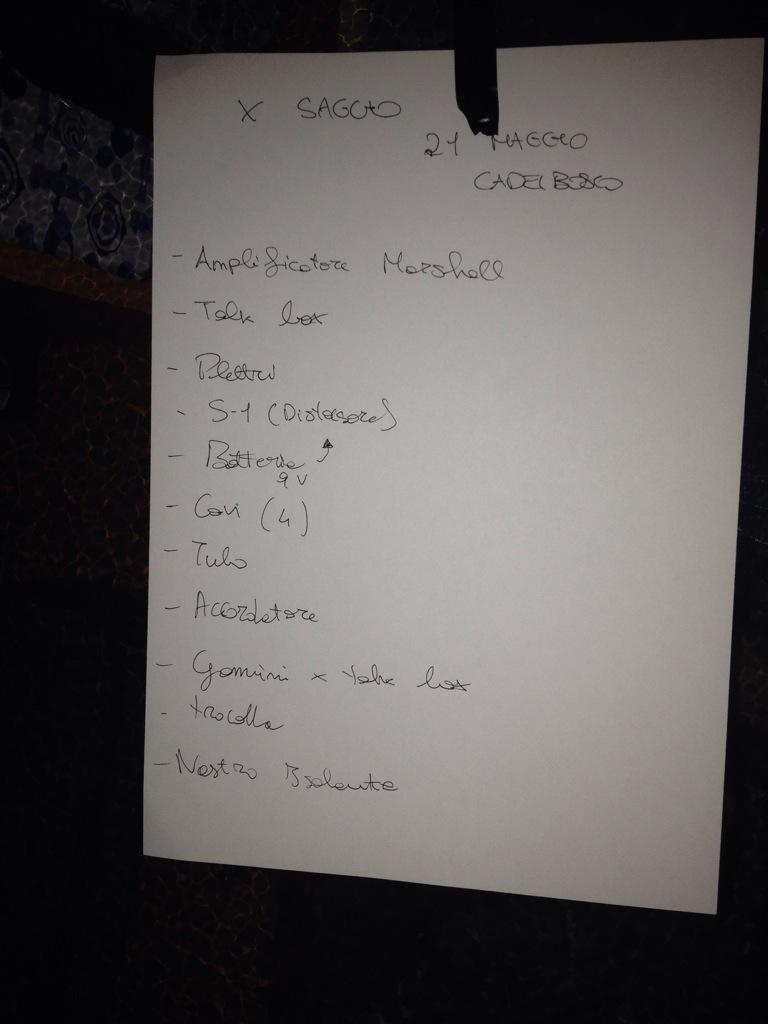 X SAGGIO
21 MAGGIO
CADELBOSCO
- Amplificatore Marshall
- Talk box
- Plettri
- S-1 (Distorsore)
- Batteria
9 V
- Cavi (4)
- Tubo
- Accordatore
- Gommini x talk box
- tracolla
- Nastro Isolante